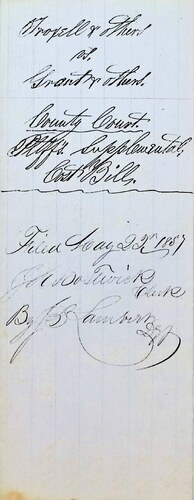 Frazell & others
vs.
Grant & others.
County Court.
Plff's Supplemental
Cost Bill.
Filed May 22d 1857
Bostwick
Clerk
By J S Lambert
Dpt